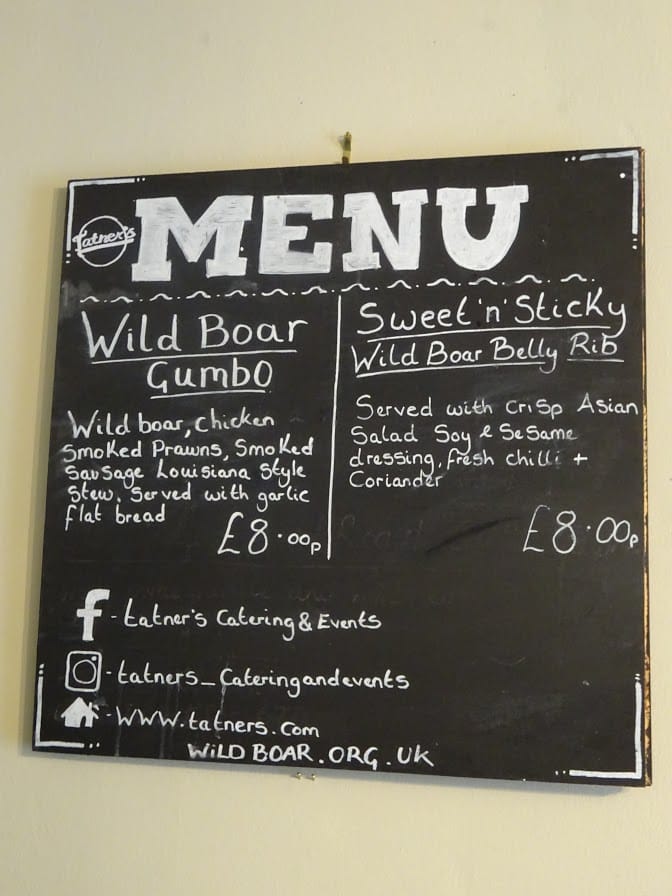 Tatner's
MENU
Wild Boar
Gumbo
Wild boar, chicken
Smoked Prawns, Smoked
Sausage Louisiana Style
Stew. Served with garlic
flat bread
£8.00p
Sweet 'n' Sticky
Wild Boar Belly Rib
Served with crisp Asian
Salad Soy & Sesame
dressing, fresh chilli +
Coriander
£8.00p
f - tatner's Catering & Events
- tatners_cateringandevents
- www.tatners.com
WILD BOAR.ORG.UK